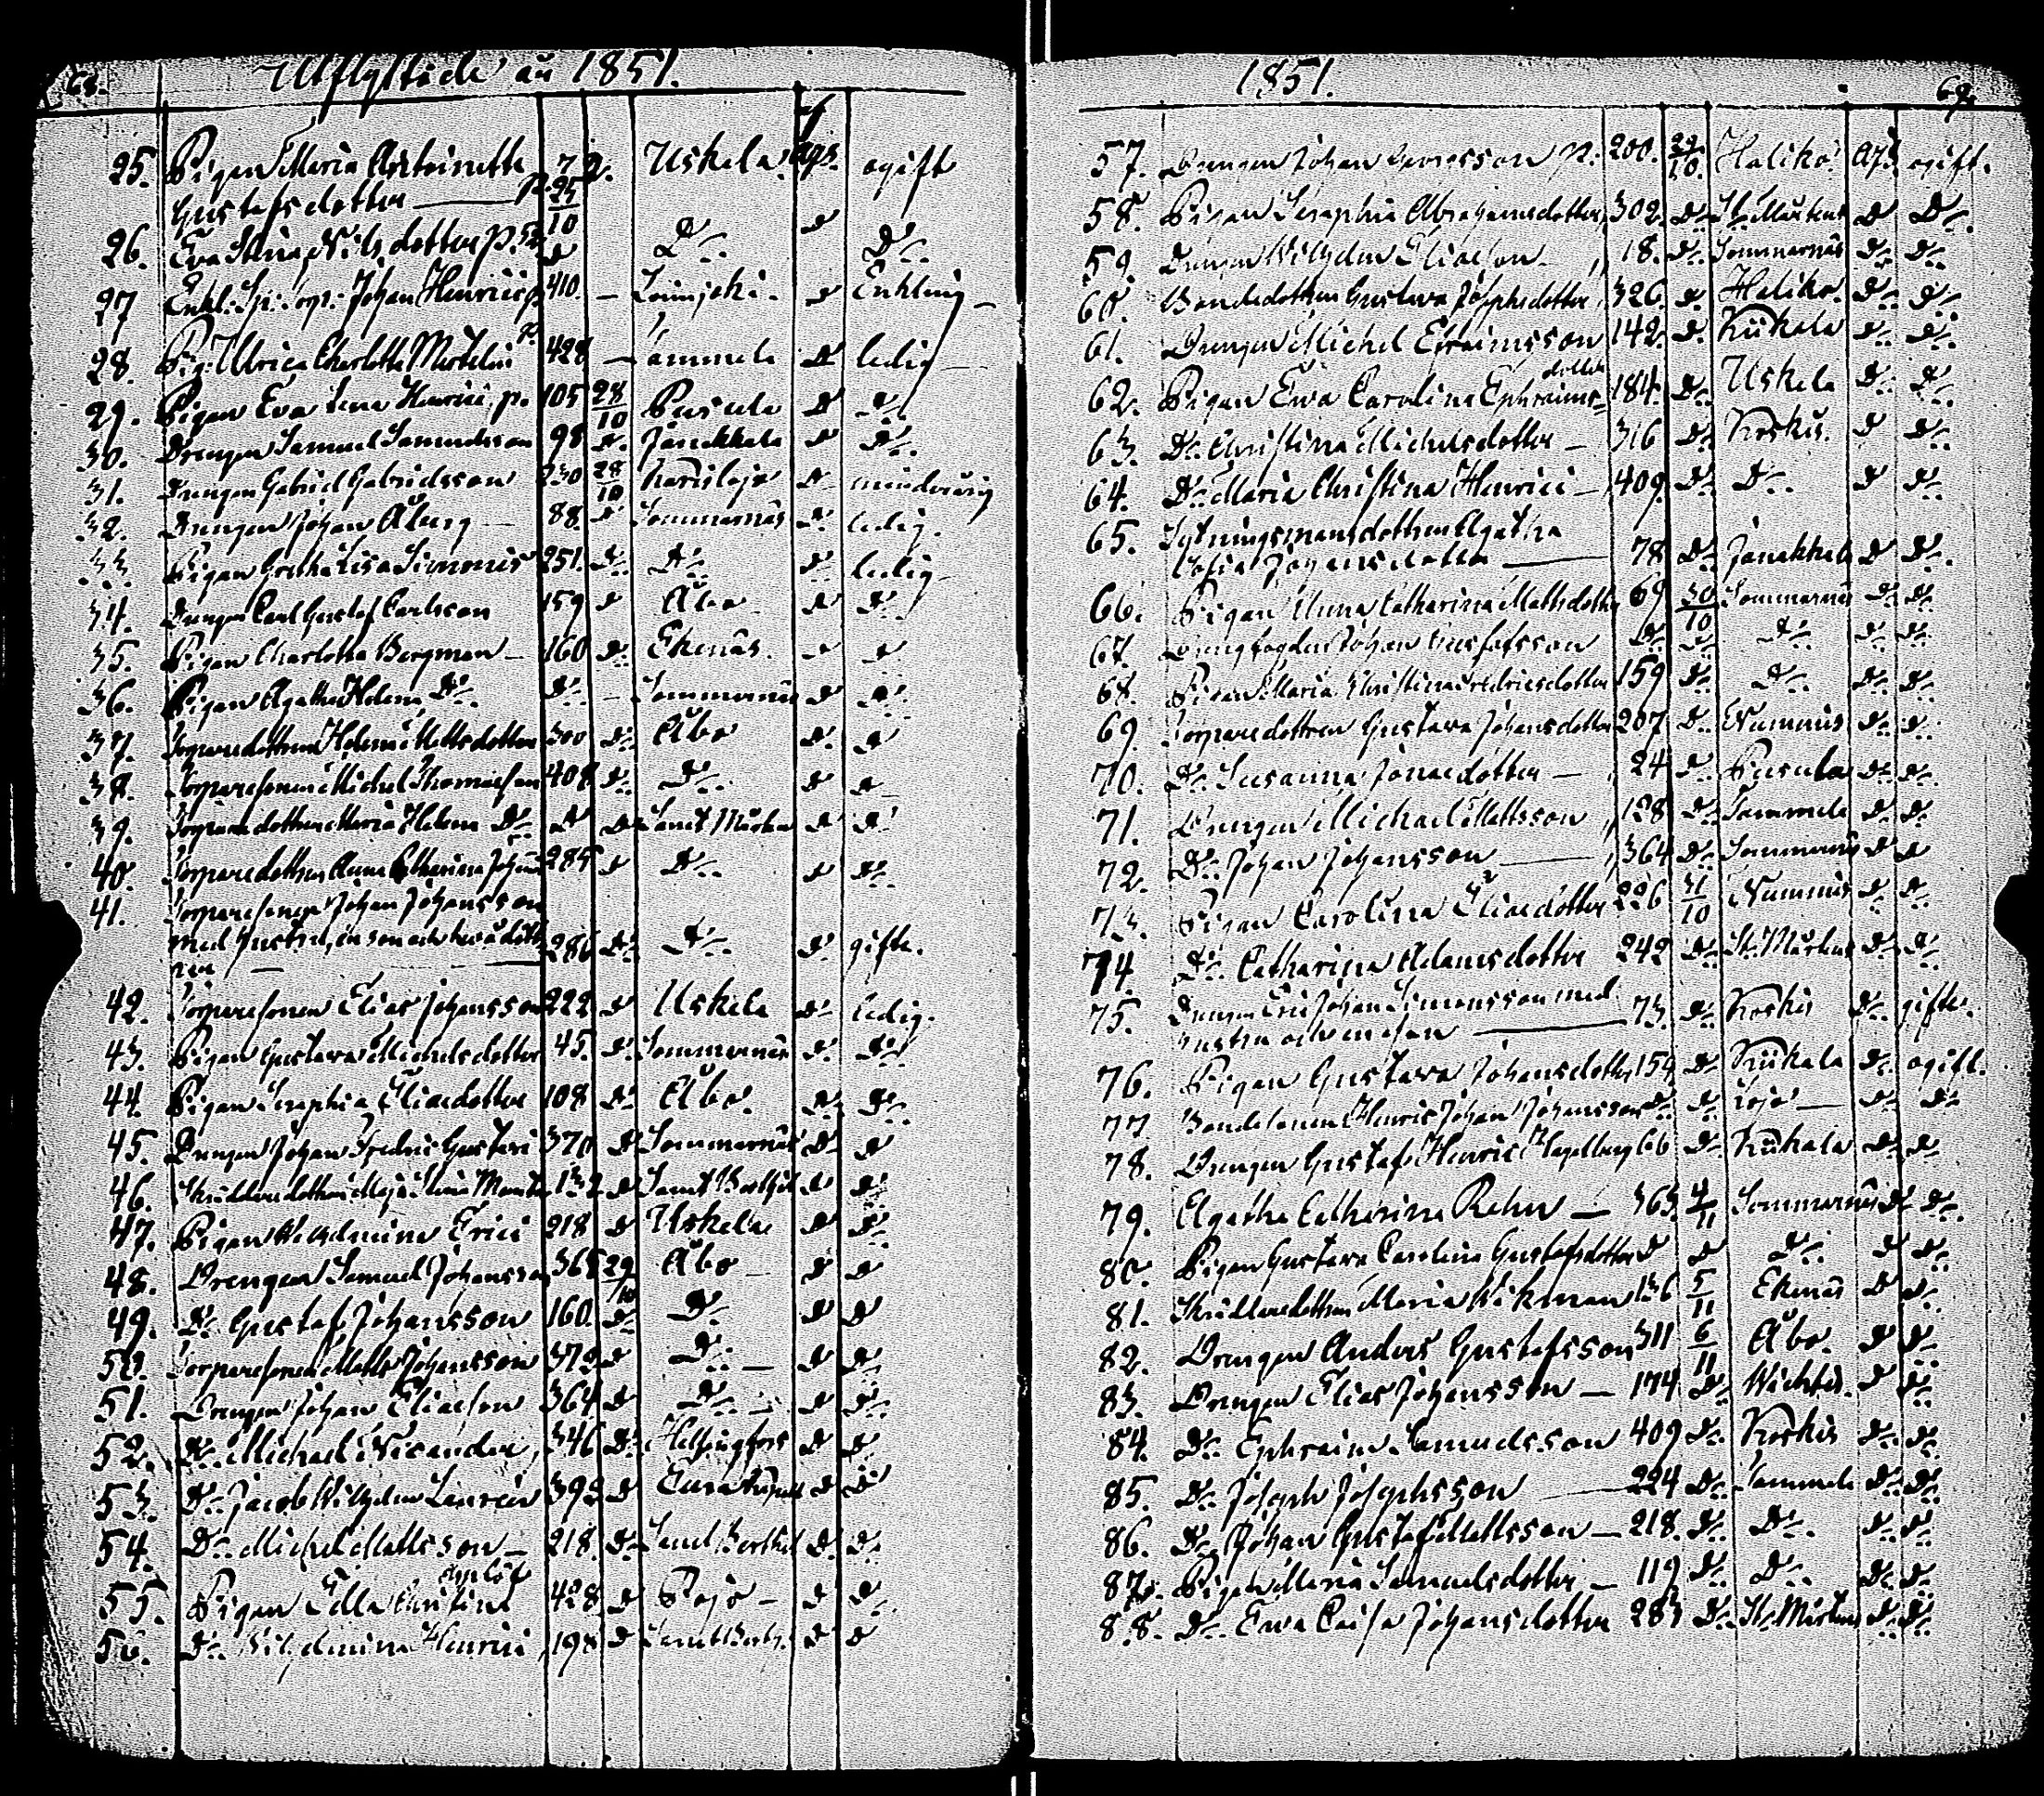 68. Utflyttade år 1851.
25. Pigan Maria Antoinette 72. Uskela. ogift
Gustafsdotter p. 25/10
26. Eva Stina Nilsdotter p. Do Do Do
27 Johan Henrici p 410. — Loimjoki. Do Enkling —
28. Pig. Ulrica Charlotta 428 — Tammela Do ledig —
29. Pigan Eva Lena Henrici p. 105 28/10 Pusula Do Do
30. Drengen Samuel Samuelsson 98 Do Janakkala Do Do
31. Drengen Gabriel Gabrielsson 230 28/10 Karislojo Do minderårig
32. Drengen Johan Åberg — 88. Do Sommarnäs Do ledig.
33 Pigan Gretha Lisa Simonis 251. Do Do Do ledig —
34. Drengen Carl Gustaf Carlsson 159 Do Åbo Do Do
35. Pigan Charlotta Bergman — 160 Do Ekenäs. Do Do
36. Pigan Agatha Helena Do Do — Sommarnäs Do Do
37. Torparedottren Helena Mattsdotter 300 Do Åbo Do Do
38. Torparesonen Michel Thomasson 408 Do Do Do Do
39. Torparedottren Maria Helena Do Do Do Sanct Mårtens Do Do
40. Torparedottren Anna Catharina Johans 285 Do Do Do Do
41. Torparesonen Johan Johansson
med hustru, en son och två dött
rar — — 286 Do Do Do gifte.
42. Torparesonen Elias Johansson 222 Do Uskela Do ledig.
43. Pigan Gustava Michelsdotter 45. Do Sommarnäs Do Do
44. Pigan Seraphia Eliaedotter 108 Do Åbo. Do Do
45. Drengen Johan Fredric Gustavi 370 Do Sommarnäs Do Do
46. Skräddaredottren Maja Stina 132 Do Sanct Bertils Do Do
47. Pigan Wilhelmina Erici 218 Do Uskela Do Do
48. Drengen Samuel Johansson 368 29/10 Åbo — Do Do
49. Do Gustaf Johansson 160. Do Do Do Do
50. Torparesonen Matts Johansson 372 Do Do — Do Do
51. Drengen Johan Eliaeson 364 Do Do Do Do
52. Do Michael Nicander 346 Do Helsingfors Do Do
53. Do Jacob Wilhelm Laurein 392 Do Do Do
54. Do Michel Mattsson — 218. Do Sanct Berthel Do Do
55. Pigan Ulla Christina 428 Do Pojo — Do Do
56. Do Wilhelmina Henrici 198 Do Sanct Berth. Do Do
1851. 69.
57. Drengen Johan p. 200. 29/10. Haliko. ogift.
58. Pigan Seraphia Abrahamsdotter 302 Do St. Mårtens Do Do
59. Drengen Wilhelm Eliaeson — 18. Do Sommarnäs Do Do
60. Bondedottren Gustava Josephsdotter 326 Do Haliko. Do Do
61. Drengen Michel Efraimsson 142. Do Kiikala Do Do
62. Pigan Ewa Carolina Ephraims dotter 184. Do Uskela Do Do
63. Do Christina Michelsdotter — 316 Do Koskis. Do Do
64. Do Maria Christina Henrici — 409. Do Do Do Do
65. Sytningsmansdottren Agatha
Johansdotter — 78 Do Janakkala Do Do
66. Pigan Anna Catharina Mattsdotter 69 30/10 Sommarnäs Do Do
67. Drengfogden Johan Gustafsson Do Do Do Do Do
68. Pigan Maria Christina Fredricsdotter 159 Do Do Do Do
69. Torparedottren Gustava Johansdotter 207 Do Nummis Do Do
70. Do Susanna Jonaedotter — 24 Do Pusula Do Do
71. Drengen Michael Mattsson 128 Do Tammela Do Do
72. Do Johan Johansson — 364 Do Sommarnäs Do Do
73. Pigan Carolina Eliaedotter 226 31/10 Nummis Do Do
74. Do Catharina Adamsdotter 242 Do St. Mårtens Do Do
75. Drengen Eric Johan Simonsson med
hustru och en son — 73. Do Koskis Do gifte.
76. Pigan Gustava Johansdotter 159 Do Kiikala Do ogift.
77 Bondesonen Henric Johan Johansson Do Do Lojo — Do Do
78. Drengen Gustaf Henric Hagelberg 66 Do Kiikala Do Do
79. Agatha Catharina Rehn — 363. 4/11 Sommarnäs Do Do
80. Pigan Gustava Carolina Gustafsdotter Do Do Do Do Do
81. Skräddaredottren Maria Wikman 136 5/11 Ekenäs Do Do
82. Drengen Anders Gustafsson 311 6/11 Åbo. Do Do
83. Drengen Elias Johansson — 174 Do Wichtis. Do Do
84. Do Ephraim Samuelsson 409 Do Koskis Do Do
85. Do Joseph Josephsson — 224 Do Tammela Do Do
86. Do Johan Gustaf Mattsson — 218. Do Do Do Do
87. Pigan Maria Samuelsdotter — 119 Do Do Do Do
88. Do Ewa Caisa Johansdotter 283 Do St. Mårtens Do Do